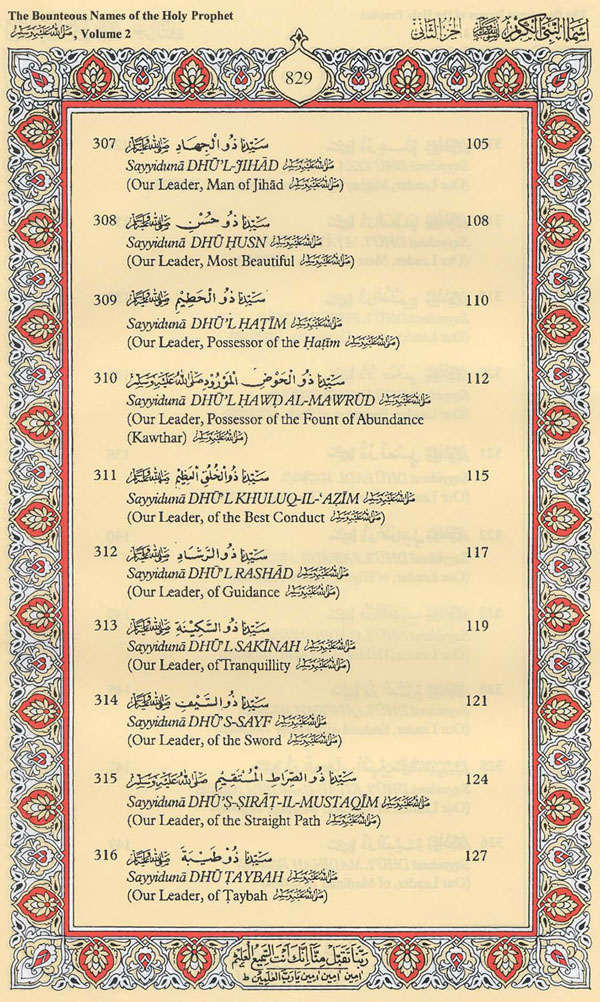 The Bounteous Names of the Holy Prophet
ﷺ, Volume 2
اسماء النبی الکریم ﷺ الجزء الثانی
829
307 سَيِّدُنَا ذُو الْجِهَادِ ﷺ 105
Sayyidunā DHŪ’L-JIHĀD ﷺ
(Our Leader, Man of Jihād ﷺ)
308 سَيِّدُنَا ذُو حُسْنٍ ﷺ 108
Sayyidunā DHŪ ḤUSN ﷺ
(Our Leader, Most Beautiful ﷺ)
309 سَيِّدُنَا ذُو الْحَطِيْمِ ﷺ 110
Sayyidunā DHŪ’L ḤAṬĪM ﷺ
(Our Leader, Possessor of the Ḥaṭīm ﷺ)
310 سَيِّدُنَا ذُو الْحَوْضِ الْمَوْرُوْدِ ﷺ 112
Sayyidunā DHŪ’L ḤAWḌ AL-MAWRŪD ﷺ
(Our Leader, Possessor of the Fount of Abundance
(Kawthar) ﷺ)
311 سَيِّدُنَا ذُو الْخُلُقِ الْعَظِيْمِ ﷺ 115
Sayyidunā DHŪ’L KHULUQ-IL-‘AẒĪM ﷺ
(Our Leader, of the Best Conduct ﷺ)
312 سَيِّدُنَا ذُو الرَّشَادِ ﷺ 117
Sayyidunā DHŪ’L RASHĀD ﷺ
(Our Leader, of Guidance ﷺ)
313 سَيِّدُنَا ذُو السَّكِيْنَةِ ﷺ 119
Sayyidunā DHŪ’L SAKĪNAH ﷺ
(Our Leader, of Tranquillity ﷺ)
314 سَيِّدُنَا ذُو السَّيْفِ ﷺ 121
Sayyidunā DHŪ’S-SAYF ﷺ
(Our Leader, of the Sword ﷺ)
315 سَيِّدُنَا ذُو الصِّرَاطِ الْمُسْتَقِيْمِ ﷺ 124
Sayyidunā DHŪ’Ṣ-ṢIRĀṬ-IL-MUSTAQĪM ﷺ
(Our Leader, of the Straight Path ﷺ)
316 سَيِّدُنَا ذُو طَيْبَةَ ﷺ 127
Sayyidunā DHŪ ṬAYBAH ﷺ
(Our Leader, of Ṭaybah ﷺ)
رَبَّنَا تَقَبَّلْ مِنَّا اِنَّكَ اَنْتَ السَّمِيْعُ الْعَلِيْمُ
اٰمِيْن اٰمِيْن اٰمِيْن يَا رَبَّ الْعٰلَمِيْن ط